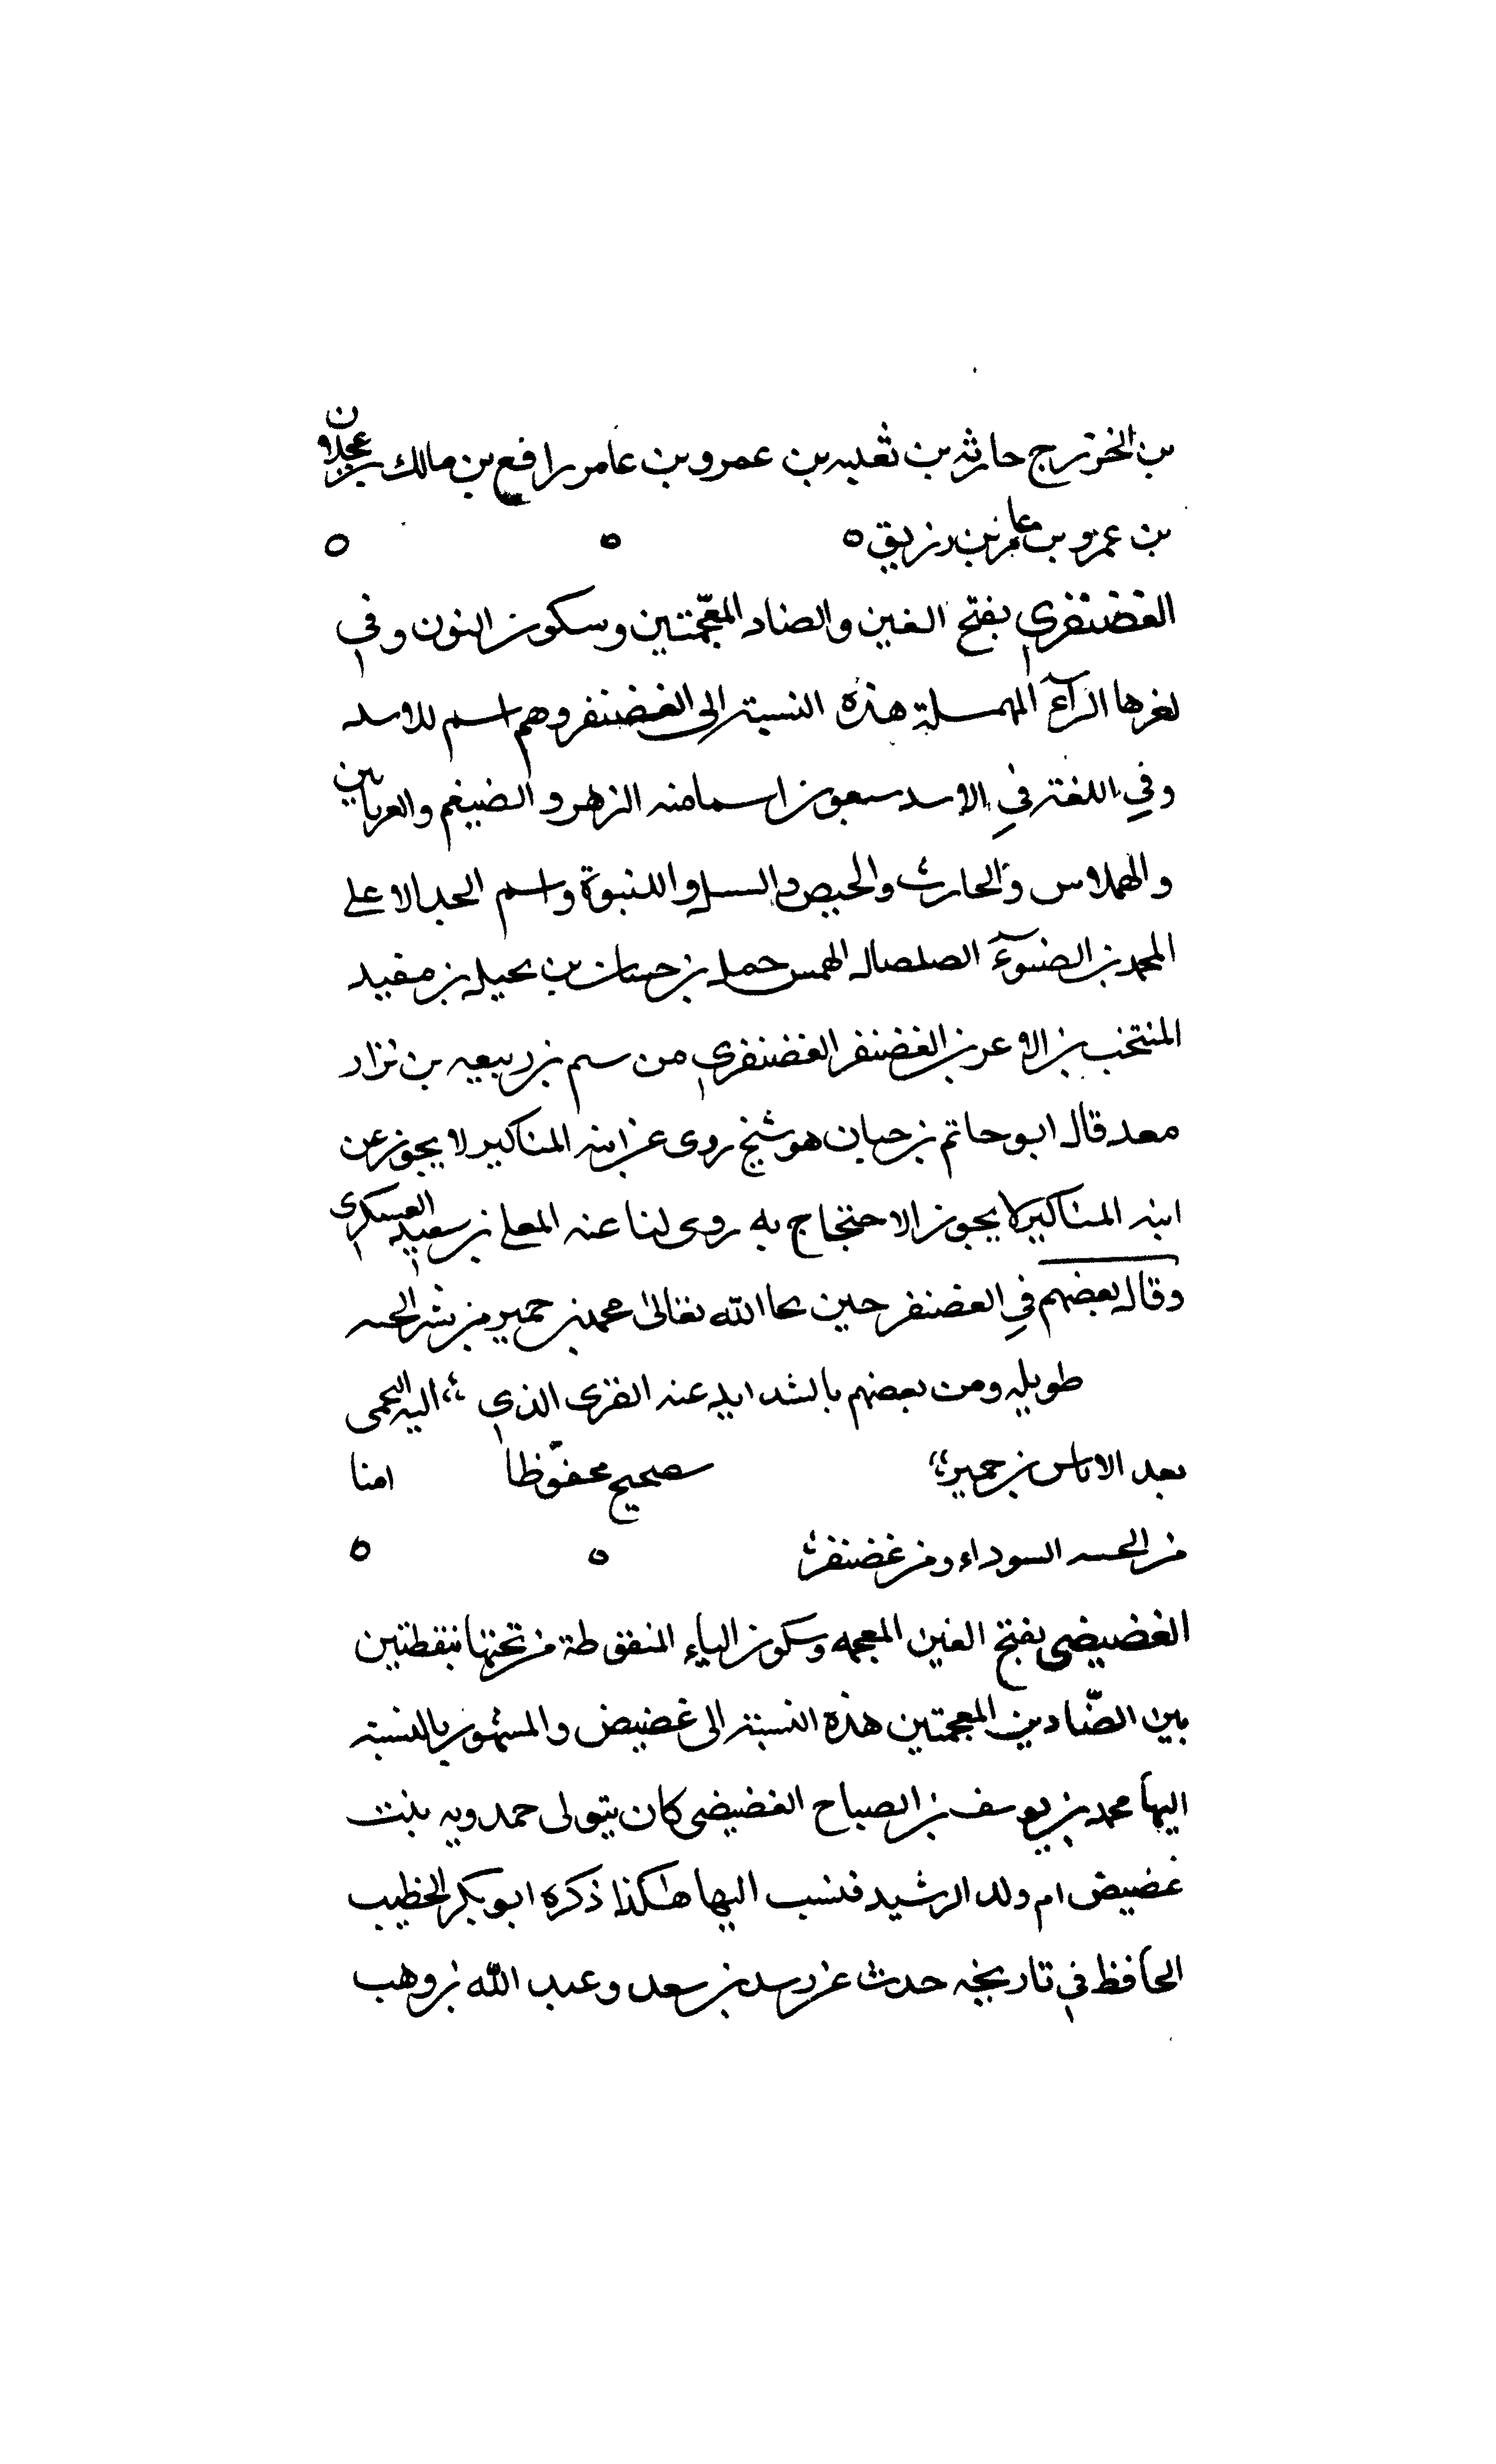 بن الخزرج حارثه بن ثعلبه بن عمرو بن عامر رافع بن مالك بن عجلان
بن عمرو بن عامر بن زريق ه ه ه
الغضنفري بفتح الغين والضاد المعجمتين وسكون النون وفي
اخرها الرآء المهملة هذه النسبة الى الغضنفر وهم اسم للاسد
وفي اللغة في الاسد سبعون اسما منه الزهر و الضيغم والعرباين
والهملاس والحارث والحيص والسل واللنبوة واسم الجد الاعلى
المحمد بن الضوءَ الصلصال الهمس حمل بن حسان بن
المنتخب بن الاعر بن الغضنفر الغضنفري من سم بن ربيعه بن نزار
معد قال ابو حاتم بن حبان هو شيخ روى عن ابيه المناكير لا يجوز عن
ابيه المناكير لا يجوز الاحتجاج به روى لنا عنه المعلى بن سعيد العسكرى
وقال بعضهم في الغضنفر حين نحا الله تعالى محمد بن حمير من شر الحسه
طويله ومن بعضهم بالشدايد عنه القرى الذي اليه
بعد الاناس بن حمير صحيح محفوظا امنا
من الحسه السوداء ومن غضنفر ه ه
الغضيضى بفتح الغين المعجمه وسكون الياء المنقوطة من تحتها بنقطتين
بين الضّادين المعجمتين هذه النسبة الى غضيض والمشهور بالنسبة
اليها محمد بن يوسف بن الصباح الغضيضى كان يتولى حمدويه بنت
غضيض ام ولد الرشيد فنسب اليها هكذا ذكره ابو بكر الخطيب
الحافظ في تاريخه حدث عن رسد بن سعد وعبد الله بن وهب